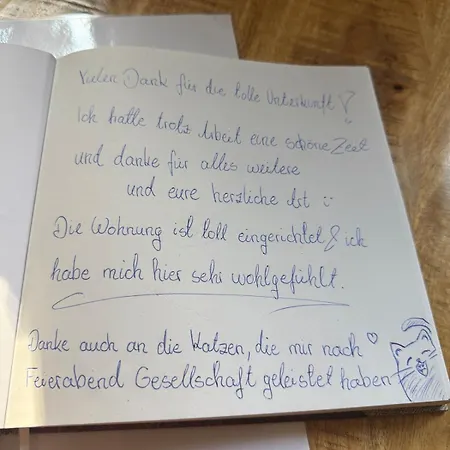 Vielen Dank für die tolle Unterkunft!
Ich hatte trotz Arbeit eine schöne Zeit
und danke für alles weitere
und eure herzliche Art :)
Die Wohnung ist toll eingerichtet & ich
habe mich hier sehr wohlgefühlt.
Danke auch an die Katzen, die mir nach ♡
Feierabend Gesellschaft geleistet haben